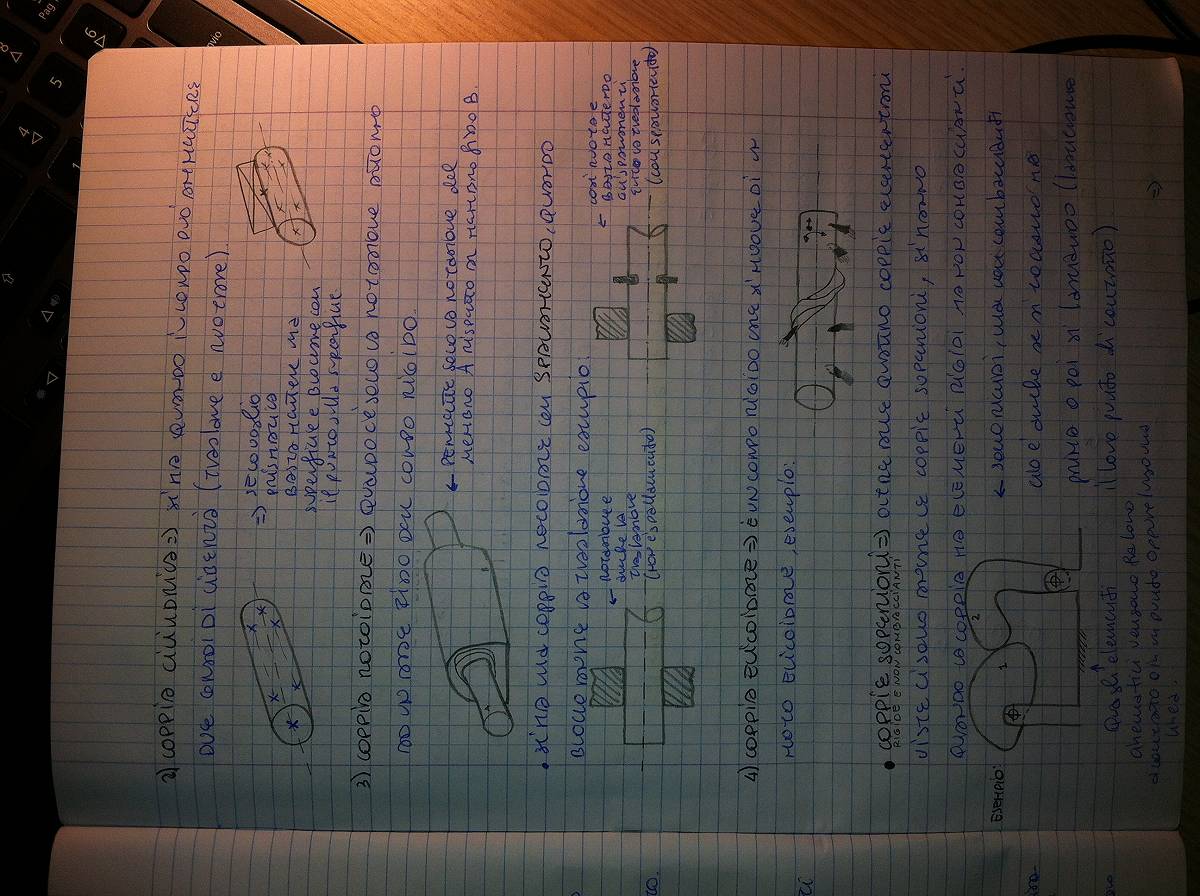 2) COPPIA CILINDRICA => si ha quando il corpo può ammettere
due gradi di libertà (traslare e ruotare).
=> se voglio
prismatica
basta mettere una
superficie e blocare con
il perno sulla superficie.
3) COPPIA ROTOIDALE => quando c'è solo la rotazione attorno
ad un asse fisso del corpo rigido.
← Permette solo la rotazione del
membro A rispetto al membro fisso B.
• si ha una coppia rotoidale con SPALLAMENTO, quando
blocchiamo la traslazione esempio:
← rotazione e
anche la
traslazione
(non è spallamento)
← così ruota e
basta mettendo
gli spallamenti
evito la traslazione
(con spallamento)
4) COPPIA ELICOIDALE => è un corpo rigido che si muove di un
moto elicoidale, esempio:
• COPPIE SUPERIORI => oltre alle quattro coppie elementari
RIGIDE E NON COMBACIANTI
viste ci sono anche le coppie superiori, si hanno
quando la coppia ha elementi rigidi ma non combacianti.
ESEMPIO:
1
2
← sono rigidi, ma non combacianti
cioè anche se si toccano ma
prima o poi si lasciano (lasciano
il loro punto di contatto)
Questi elementi
cinematici vengono fra loro
a contatto o in un punto oppure lungo una
linea.
=>